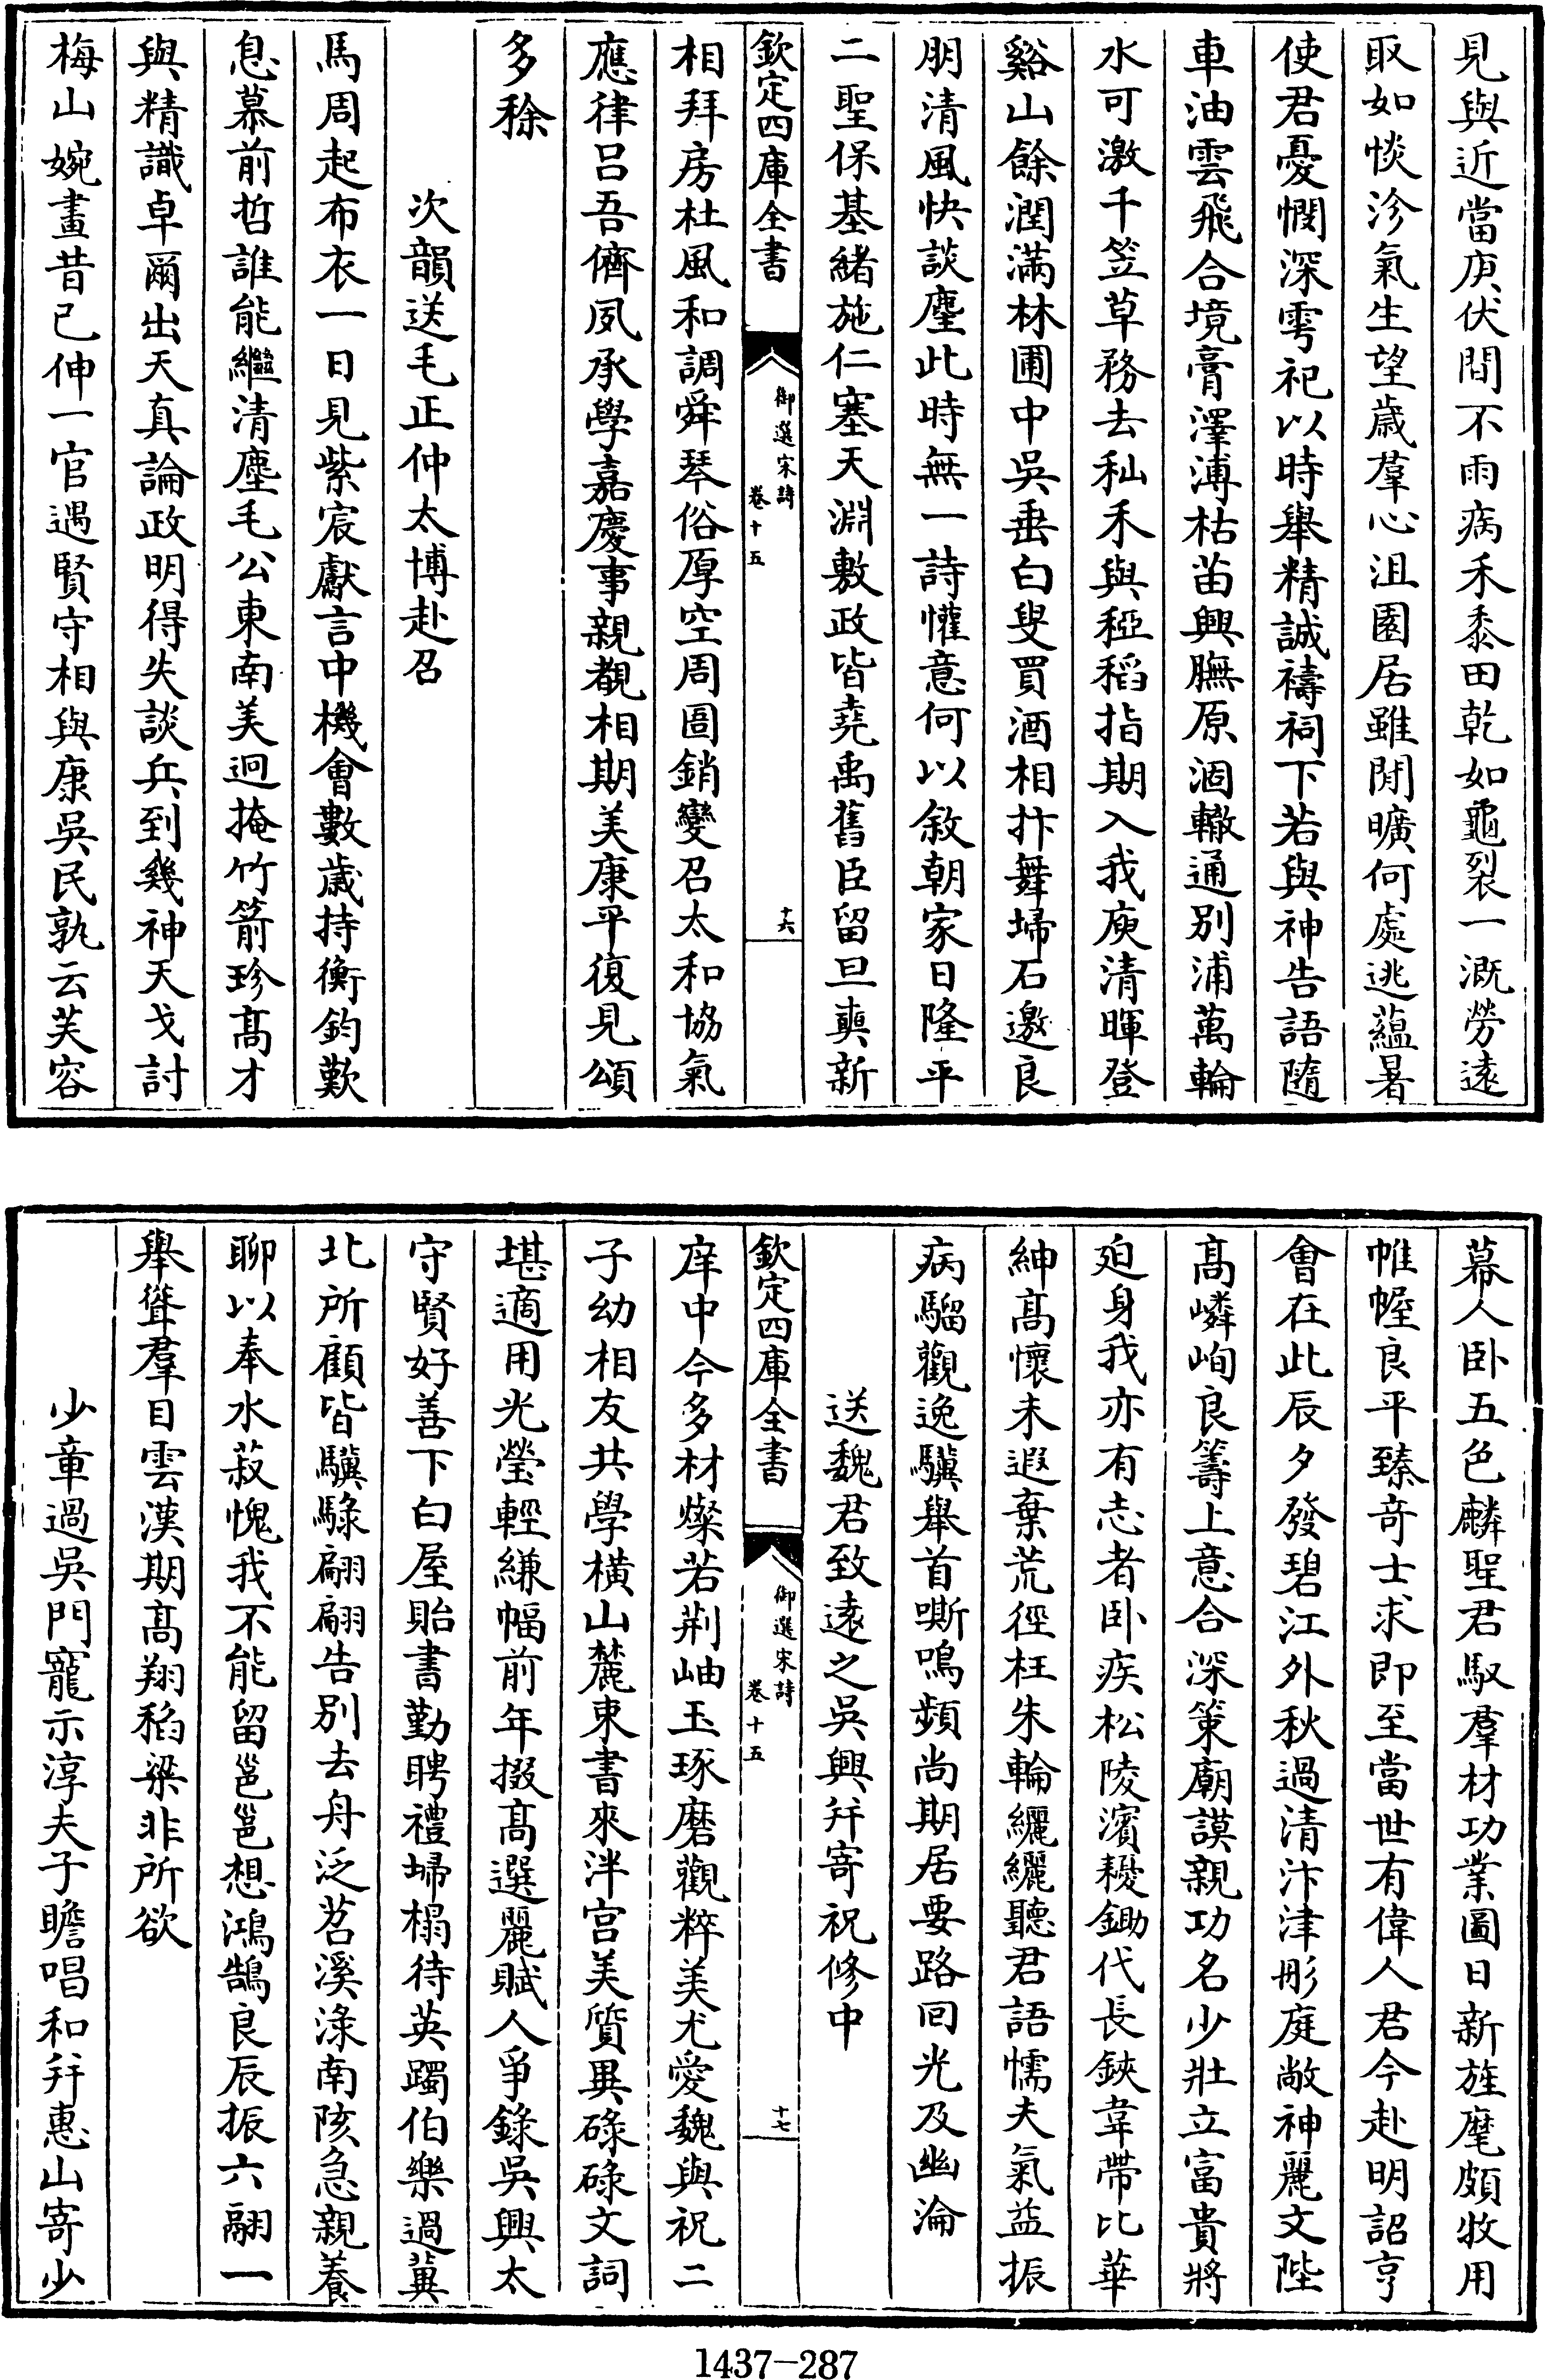 見與近當庚伏間不雨病禾黍田乾如龜裂一溉勞遠
取如惔沴氣生望歲羣心沮園居雖閒曠何處逃蘊暑
使君憂憫深雩祀以時舉精誠禱祠下若與神告語隨
車油雲飛合境膏澤溥枯苗興膴原涸轍通別浦萬輪
水可激千笠草務去私禾與稏稻指期入我庾清暉登
谿山餘潤滿林圃中吳垂白叟買酒相抃舞埽石邀良
朋清風快談麈此時無一詩懽意何以敘朝家日隆平
二聖保基緒施仁塞天淵敷政皆堯禹舊臣留旦奭新
欽定四庫全書
御選宋詩
卷十五
十六
相拜房杜風和調舜琴俗厚空周圄銷變召太和協氣
應律呂吾儕夙承學嘉慶事親覩相期美康平復見頌
多稌
次韻送毛正仲太博赴召
馬周起布衣一日見紫宸獻言中機會數歲持衡鈞歎
息慕前哲誰能繼清塵毛公東南美迥掩竹箭珍髙才
與精識卓爾出天真論政明得失談兵到幾神天戈討
梅山婉畫昔已伸一官遇賢守相與康吳民孰云芙容
幕人卧五色麟聖君馭羣材功業圖日新旌麾頗牧用
帷幄良平臻竒士求即至當世有偉人君今赴明詔亨
會在此辰夕發碧江外秋過清汴津彤庭敞神麗文陛
髙嶙峋良籌上意合深策廟謨親功名少壯立富貴將
廹身我亦有志者卧疾松陵濱耰鋤代長鋏韋帶比華
紳髙懷未遐棄荒徑枉朱輪纚纚聽君語懦夫氣益振
病騮觀逸驥舉首嘶鳴頻尚期居要路回光及幽淪
送魏君致遠之吳興幷寄祝修中
欽定四庫全書
御選宋詩
卷十五
十七
庠中今多材燦若荆岫玉琢磨觀粹美尤愛魏與祝二
子幼相友共學橫山麓束書來泮宫美質異碌碌文詞
堪適用光瑩輕縑幅前年掇髙選麗賦人爭錄吳興太
守賢好善下白屋貽書勤聘禮埽榻待英躅伯樂過冀
北所顧皆驥騄翩翩告別去舟泛苕溪淥南陔急親養
聊以奉水菽愧我不能留邕邕想鴻鵠良辰振六翮一
舉聳羣目雲漢期髙翔稻粱非所欲
少章過吳門寵示淳夫子瞻唱和幷惠山寄少
1437-287